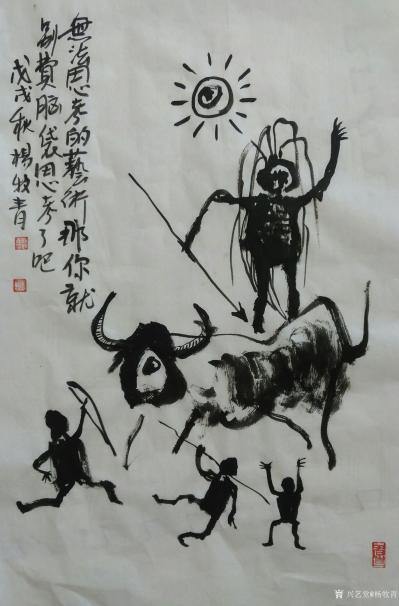 無法思考的藝術那你就
别費脑袋思考了吧
戊戌秋楊牧青
兴艺堂@杨牧青